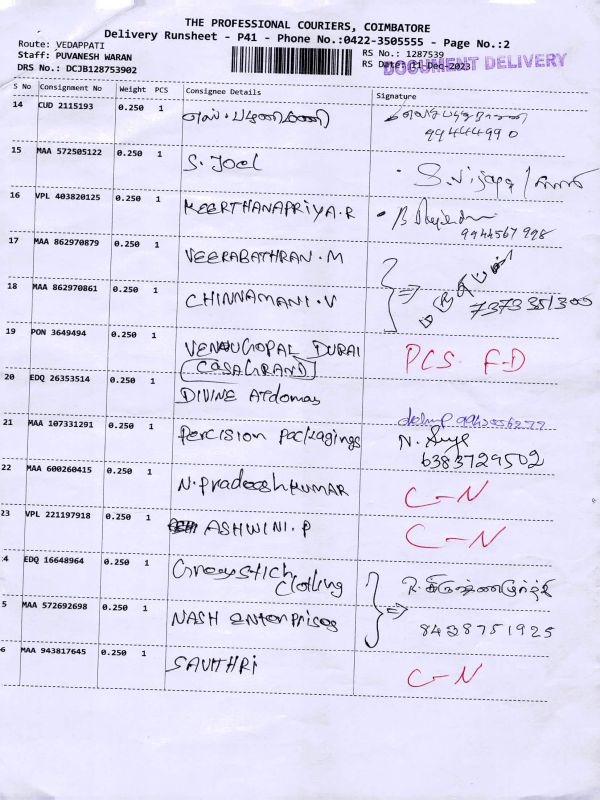 THE PROFESSIONAL COURIERS, COIMBATORE
Delivery Runsheet - P41 - Phone No.:0422-3505555 - Page No.:2
Route: VEDAPPATI
Staff: PUVANESH WARAN
DRS No.: DCJB128753902
RS No.: 1287539
RS Date: 11-Dec-2023
DOCUMENT DELIVERY
S No Consignment No Weight PCS Consignee Details Signature
14 CUD 2115193 0.250 1
99444499 0
15 MAA 572505122 0.250 1 S. Joel
16 VPL 403820125 0.250 1 KEERTHANAPRIYA.R
9944567 998
17 MAA 862970879 0.250 1 VEERABATHRAN.M
18 MAA 862970861 0.250 1 CHINNAMANI.V 7373351300
19 PON 3649494 0.250 1 VENUGOPAL DURAI PCS. F-D
CASAGRAND
20 EDQ 26353514 0.250 1 DIVINE
21 MAA 107331291 0.250 1 Percision Packagings N.
6383729502
22 MAA 600260415 0.250 1 N. Pradeesh KUMAR C-N
23 VPL 221197918 0.250 1 ASHWINI.P C-N
4 EDQ 16648964 0.250 1 Clothing
5 MAA 572692698 0.250 1 NASH enterprises 8428751925
6 MAA 943817645 0.250 1 SAVITHRI C-N